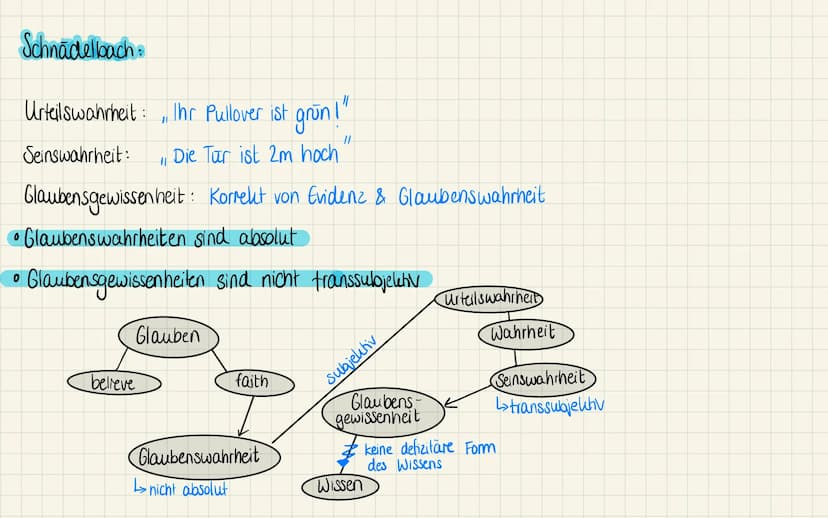 Schnädelbach:
Urteilswahrheit: „Ihr Pullover ist grün!"
Seinswahrheit: „Die Tür ist 2m hoch"
Glaubensgewissenheit: Korrekt von Evidenz & Glaubenswahrheit
• Glaubenswahrheiten sind absolut
• Glaubensgewissenheiten sind nicht transsubjektiv
Urteilswahrheit
Glauben
Wahrheit
subjektiv
believe
faith
Seinswahrheit
↳transsubjektiv
Glaubens-
gewissenheit
Glaubenswahrheit
↳nicht absolut
keine defizitäre Form
des Wissens
Wissen